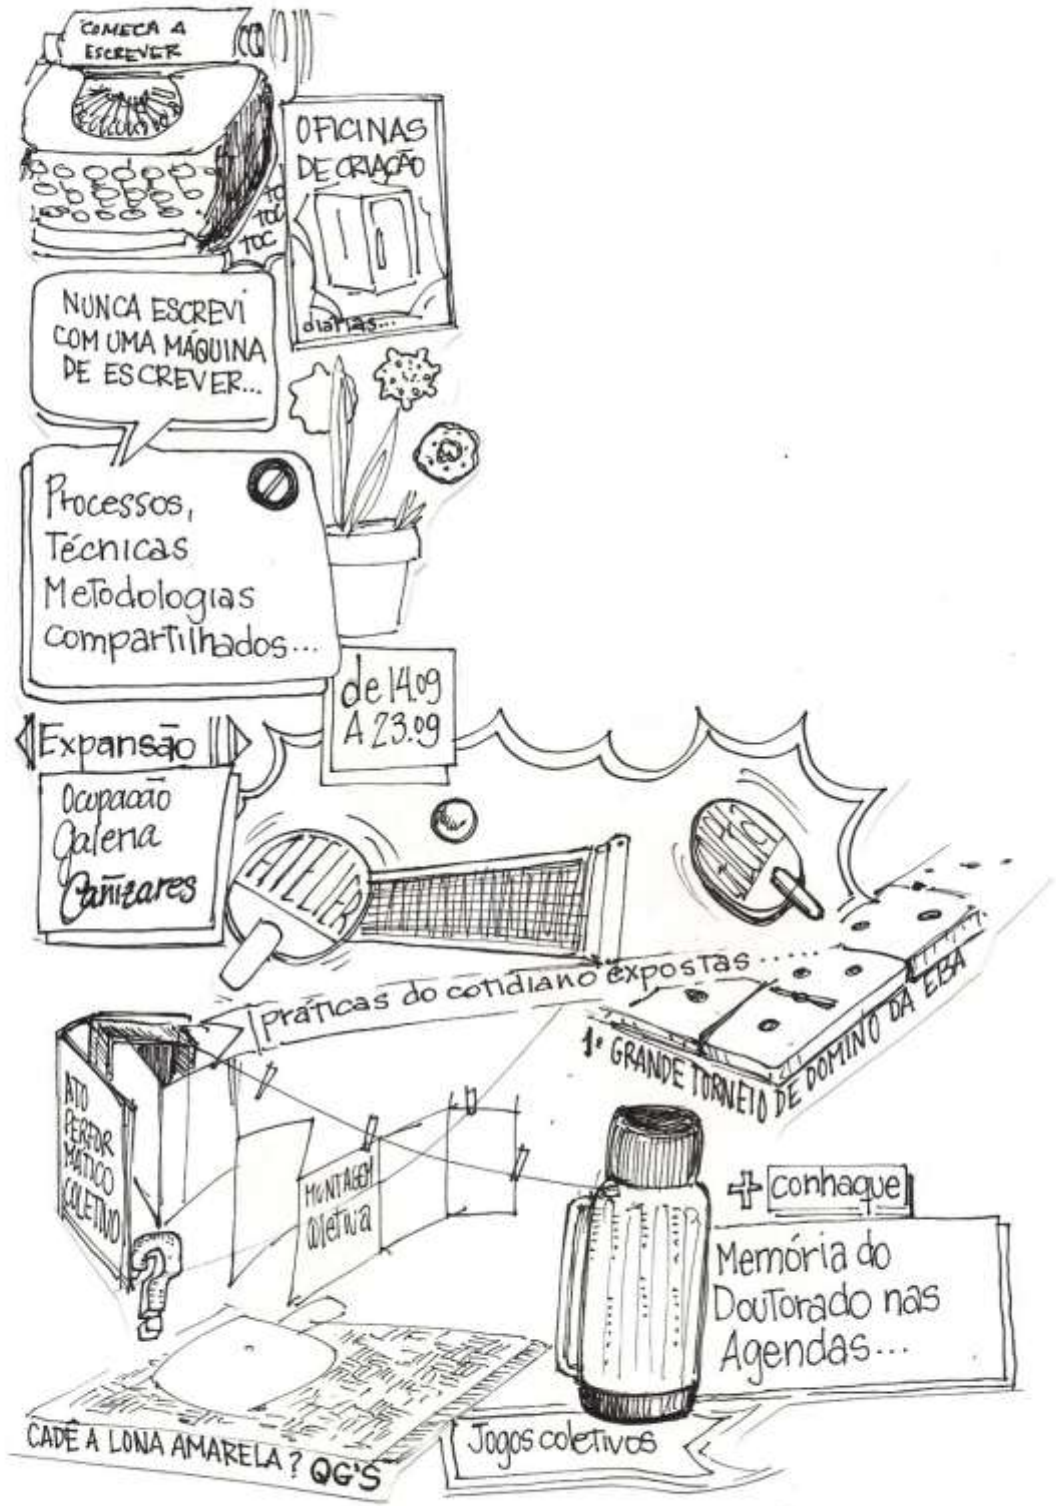 COMEÇA A
ESCREVER
OFICINAS
DE CRIAÇÃO
diárias...
TOC
TOC
NUNCA ESCREVI
COM UMA MÁQUINA
DE ESCREVER...
Processos,
Técnicas
Metodologias
compartilhados...
de 14.09
A 23.09
Expansão
Ocupação
Galeria
Cañizares
práticas do cotidiano expostas.....
1º GRANDE TORNEIO DE DOMINÓ DA EBA
ATO
PERFOR
MÁTICO
COLETIVO
MONTAGEM
coletiva
+ conhaque
Memória do
Doutorado nas
Agendas...
CADÊ A LONA AMARELA? QG'S
Jogos coletivos